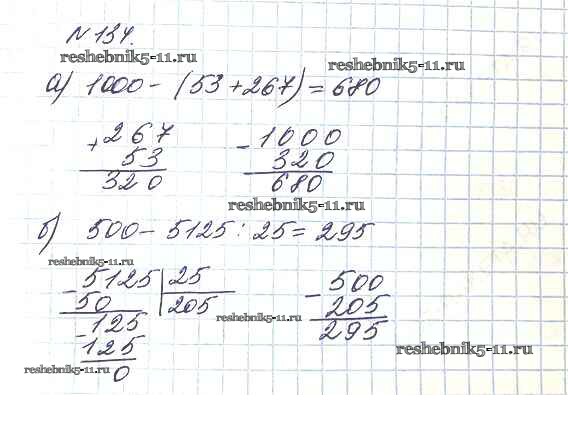 № 134.
reshebnik5-11.ru
reshebnik5-11.ru
а) 1000 - (53 + 267) = 680
+ 267
53
320
- 1000
320
680
reshebnik5-11.ru
б) 500 - 5125 : 25 = 295
reshebnik5-11.ru
- 5125 | 25
50 205
- 125
125
0
reshebnik5-11.ru
reshebnik5-11.ru
- 500
205
295
reshebnik5-11.ru